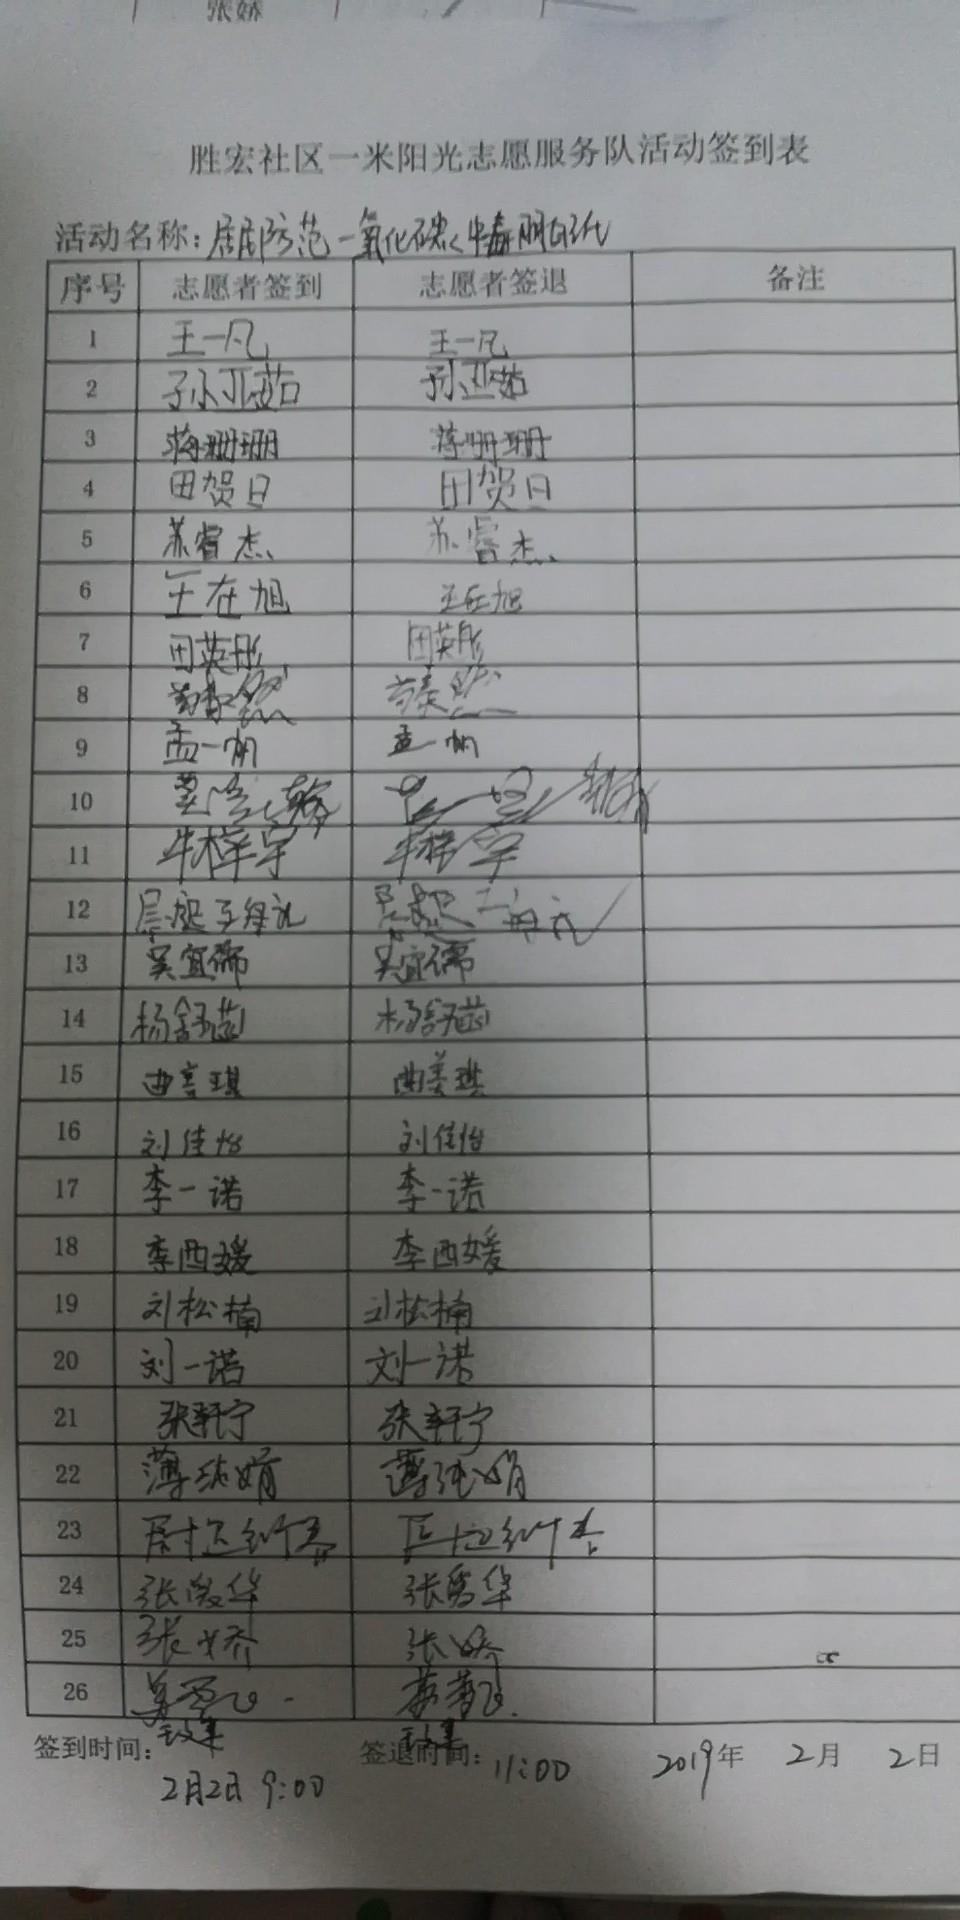 张娇
胜宏社区一米阳光志愿服务队活动签到表
活动名称：居民防范一氧化碳中毒明白纸
序号 志愿者签到 志愿者签退 备注
1 王一凡 王一凡
2 孙亚茹 孙亚茹
3 蒋珊珊 蒋珊珊
4 田贺日 田贺日
5 苏睿杰 苏睿杰
6 王在旭 王在旭
7 田英彤 田英彤
8
9 孟一帆 孟一帆
10
11 牛梓宇 牛梓宇
12
13 吴宜儒 吴宜儒
14 杨舒茵 杨舒茵
15 曲美琪 曲美琪
16 刘佳怡 刘佳怡
17 李一诺 李一诺
18 李西媛 李西媛
19 刘松楠 刘松楠
20 刘一诺 刘一诺
21 张轩宁 张轩宁
22 薄纯娟 薄纯娟
23
24 张秀华 张秀华
25 张娇 张娇
26
签到时间： 签退时间： 2019年 2月 2日
2月2日 9:00 11:00